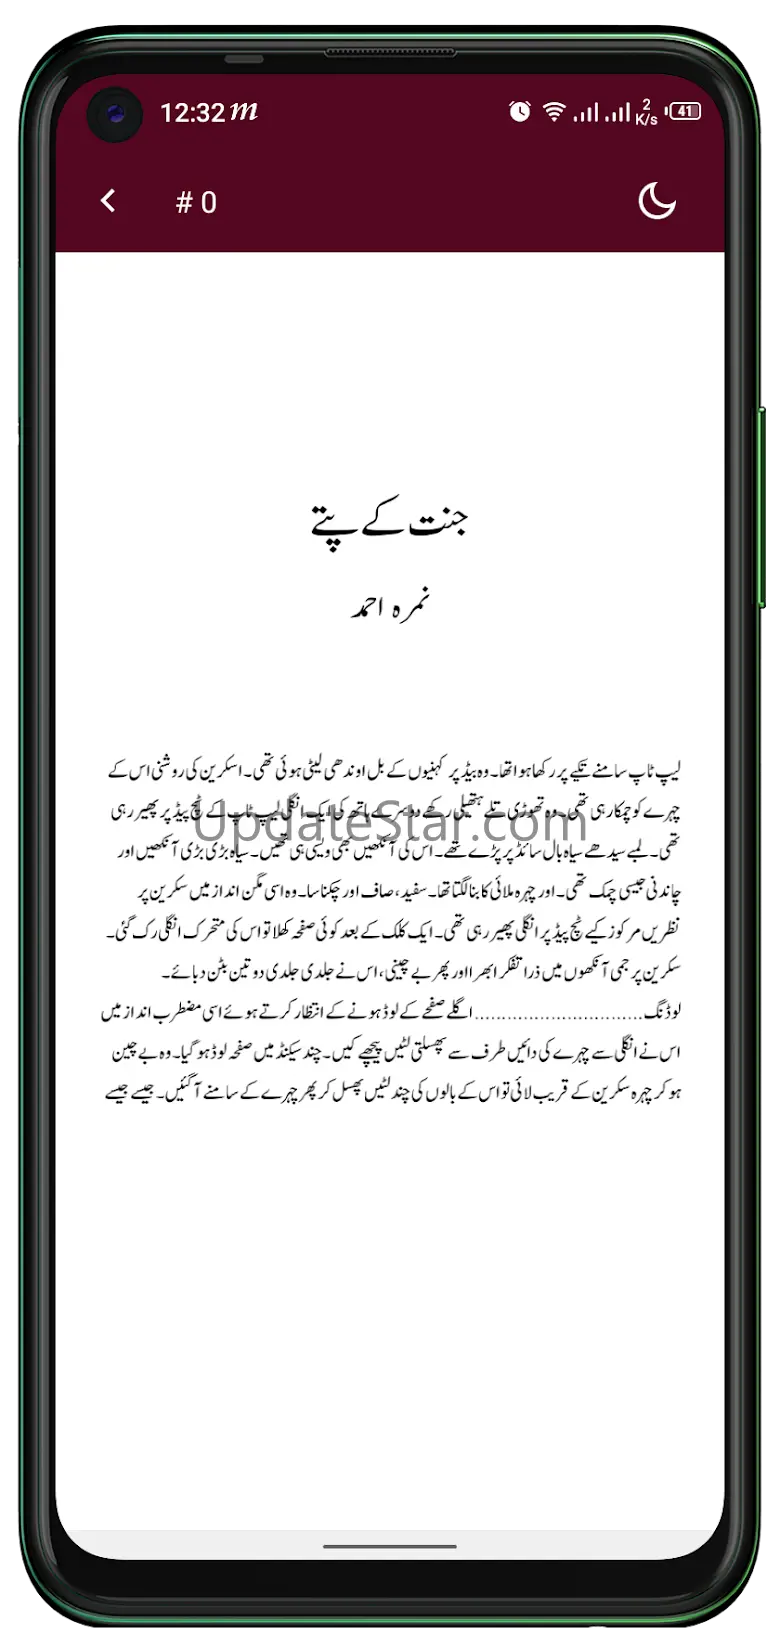 12:32 m
2 K/s
41
# 0
جنت کے پتے
نمرہ احمد
لیپ ٹاپ سامنے تکیے پر رکھا ہوا تھا۔ وہ بیڈ پر کہنیوں کے بل اوندھی لیٹی ہوئی تھی۔ اسکرین کی روشنی اس کے
چہرے کو چمکا رہی تھی۔ وہ تھوڑی تلے ہتھیلی رکھے دوسرے ہاتھ کی ایک انگلی لیپ ٹاپ کے ٹچ پیڈ پر پھیر رہی
UpdateStar.com
تھی۔ لمبے سیدھے سیاہ بال سائڈ پر پڑے تھے۔ اس کی آنکھیں بھی ویسی ہی تھیں۔ سیاہ بڑی بڑی آنکھیں اور
چاندنی جیسی چمک تھی۔ اور چہرہ ملائی کا بنا لگتا تھا۔ سفید، صاف اور چکنا سا۔ وہ اسی مگن انداز میں سکرین پر
نظریں مرکوز کیے ٹچ پیڈ پر انگلی پھیر رہی تھی۔ ایک کلک کے بعد کوئی صفحہ کھلا تو اس کی متحرک انگلی رک گئی۔
سکرین پر جمی آنکھوں میں ذرا تفکر ابھرا اور پھر بے چینی، اس نے جلدی جلدی دو تین بٹن دبائے۔
لوڈنگ................................ اگلے صفحے کے لوڈ ہونے کے انتظار کرتے ہوئے اسی مضطرب انداز میں
اس نے انگلی سے چہرے کی دائیں طرف سے پھسلتی لٹیں پیچھے کیں۔ چند سیکنڈ میں صفحہ لوڈ ہو گیا۔ وہ بے چین
ہو کر چہرہ سکرین کے قریب لائی تو اس کے بالوں کی چند لٹیں پھسل کر پھر چہرے کے سامنے آ گئیں۔ جیسے جیسے